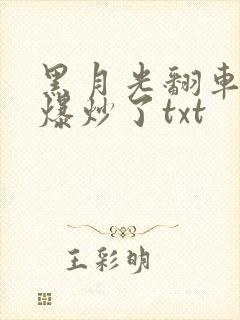 黑月光翻车
爆炒了txt
王彩明